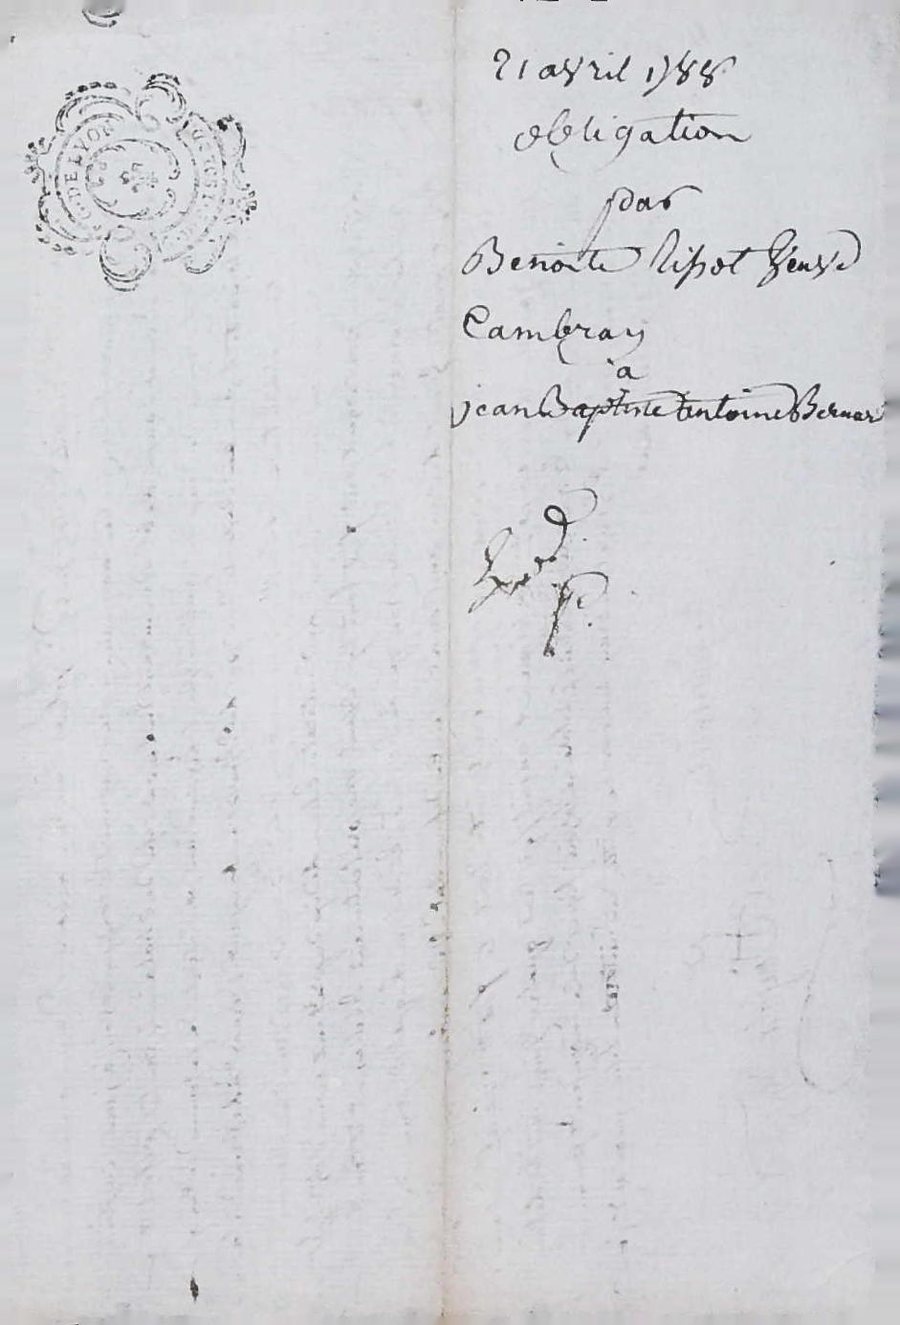 DE LYON
21 avril 1788
obligation
par
Benoite Ripot Veuve
Cambray
a
jean Baptiste Antoine Bernar